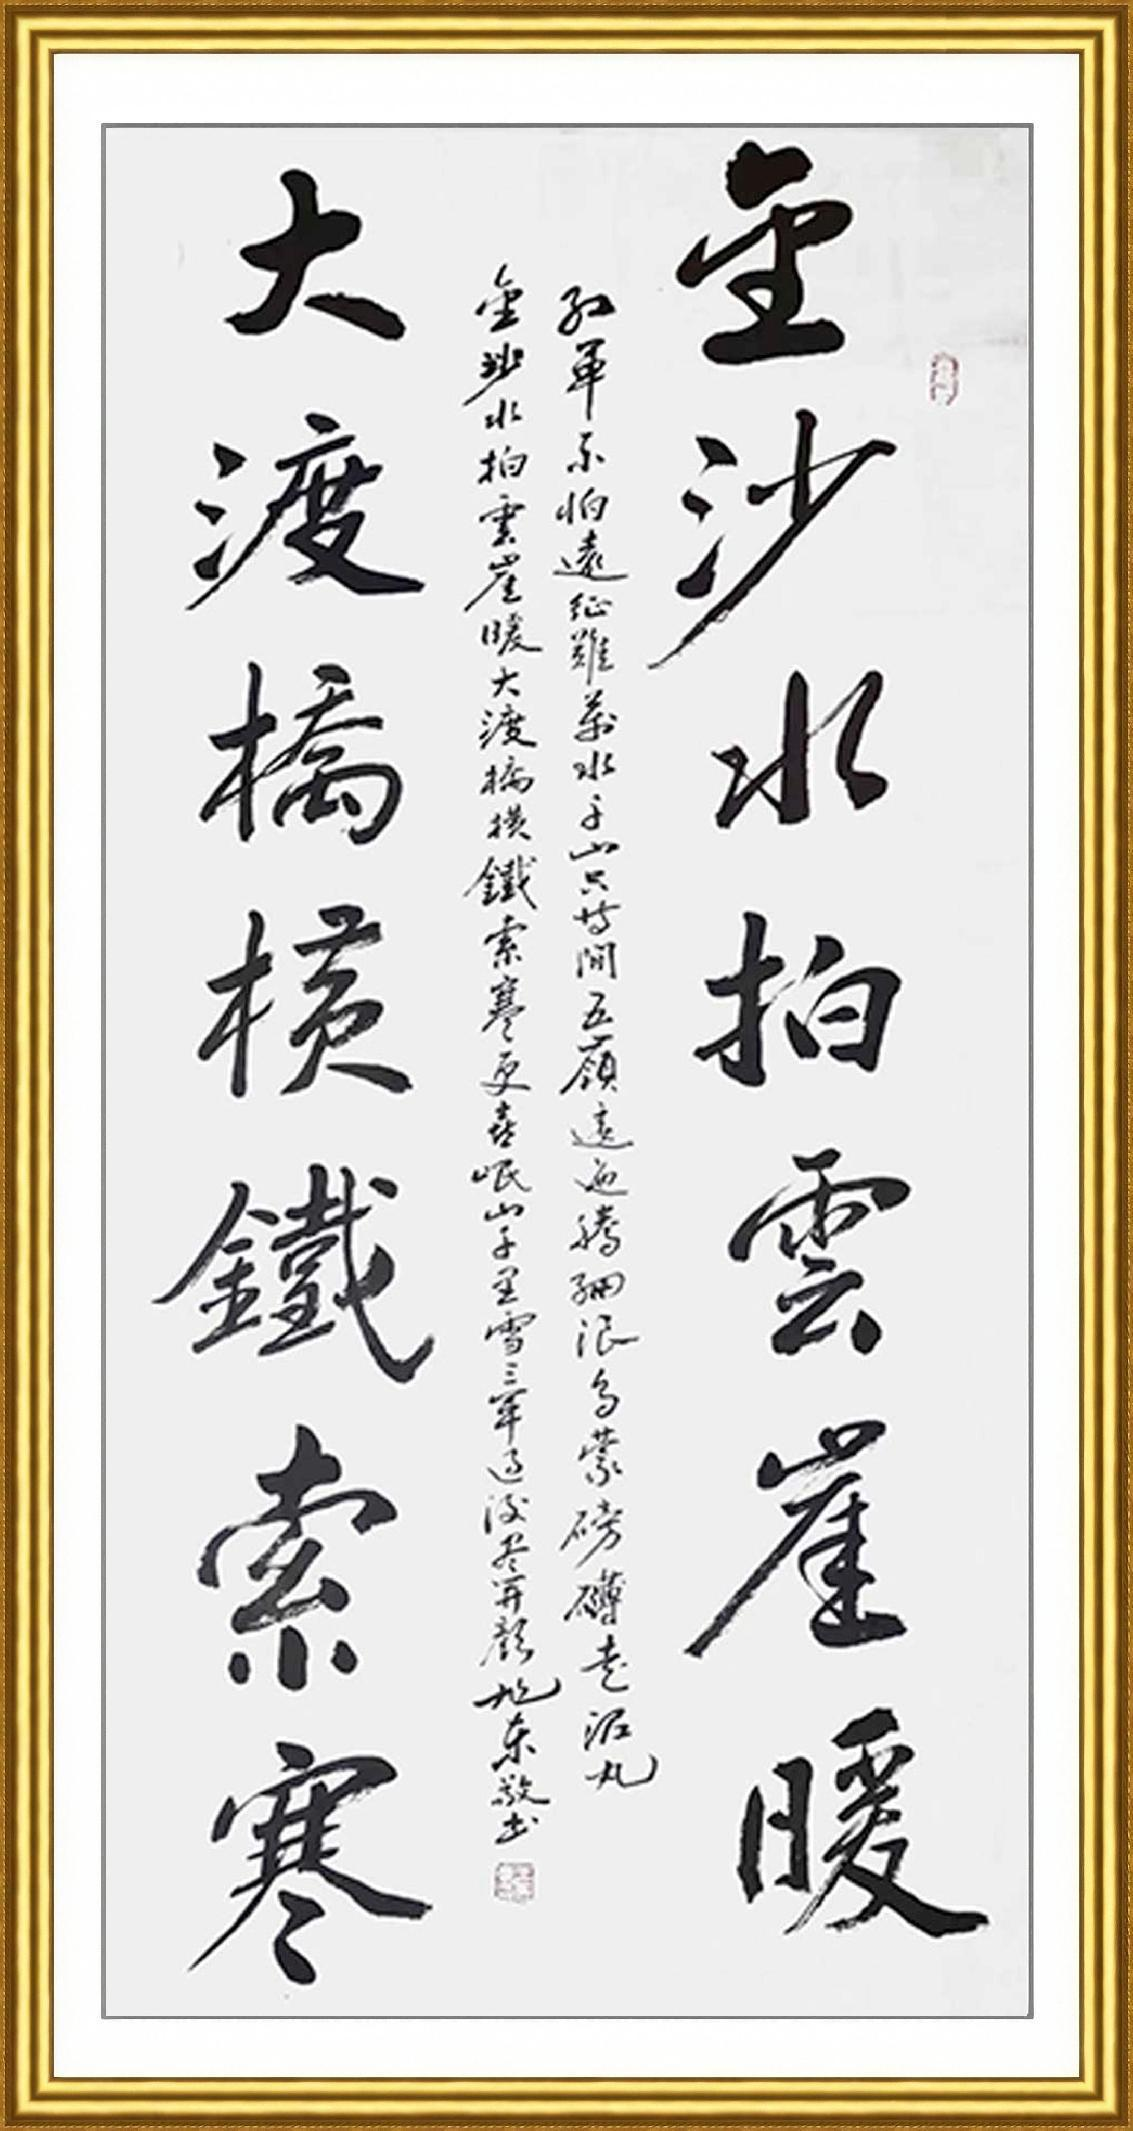 金沙水拍雲崖暖
紅軍不怕遠征難萬水千山只等閒五嶺逶迤騰細浪烏蒙磅礴走泥丸
金沙水拍雲崖暖大渡橋橫鐵索寒更喜岷山千里雪三軍過後盡開顏旭東敬書
大渡橋橫鐵索寒